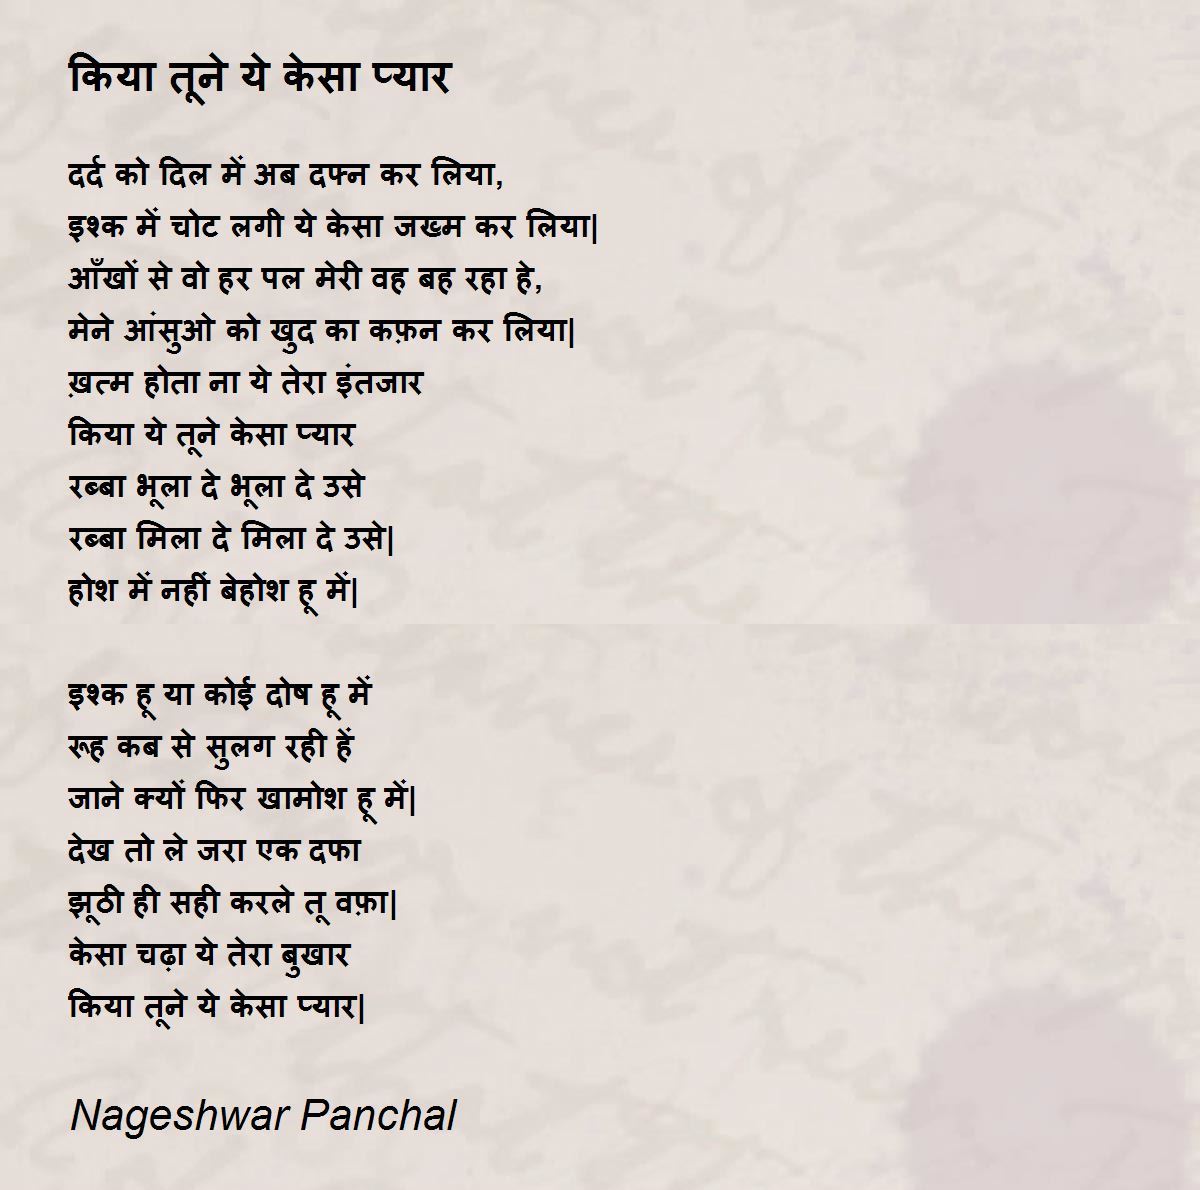 किया तूने ये केसा प्यार
दर्द को दिल में अब दफ्न कर लिया,
इश्क में चोट लगी ये केसा जख्म कर लिया|
आँखों से वो हर पल मेरी वह बह रहा हे,
मेने आंसुओ को खुद का कफ़न कर लिया|
ख़त्म होता ना ये तेरा इंतजार
किया ये तूने केसा प्यार
रब्बा भूला दे भूला दे उसे
रब्बा मिला दे मिला दे उसे|
होश में नहीं बेहोश हू में|
इश्क हू या कोई दोष हू में
रूह कब से सुलग रही हें
जाने क्यों फिर खामोश हू में|
देख तो ले जरा एक दफा
झूठी ही सही करले तू वफ़ा|
केसा चढ़ा ये तेरा बुखार
किया तूने ये केसा प्यार|
Nageshwar Panchal